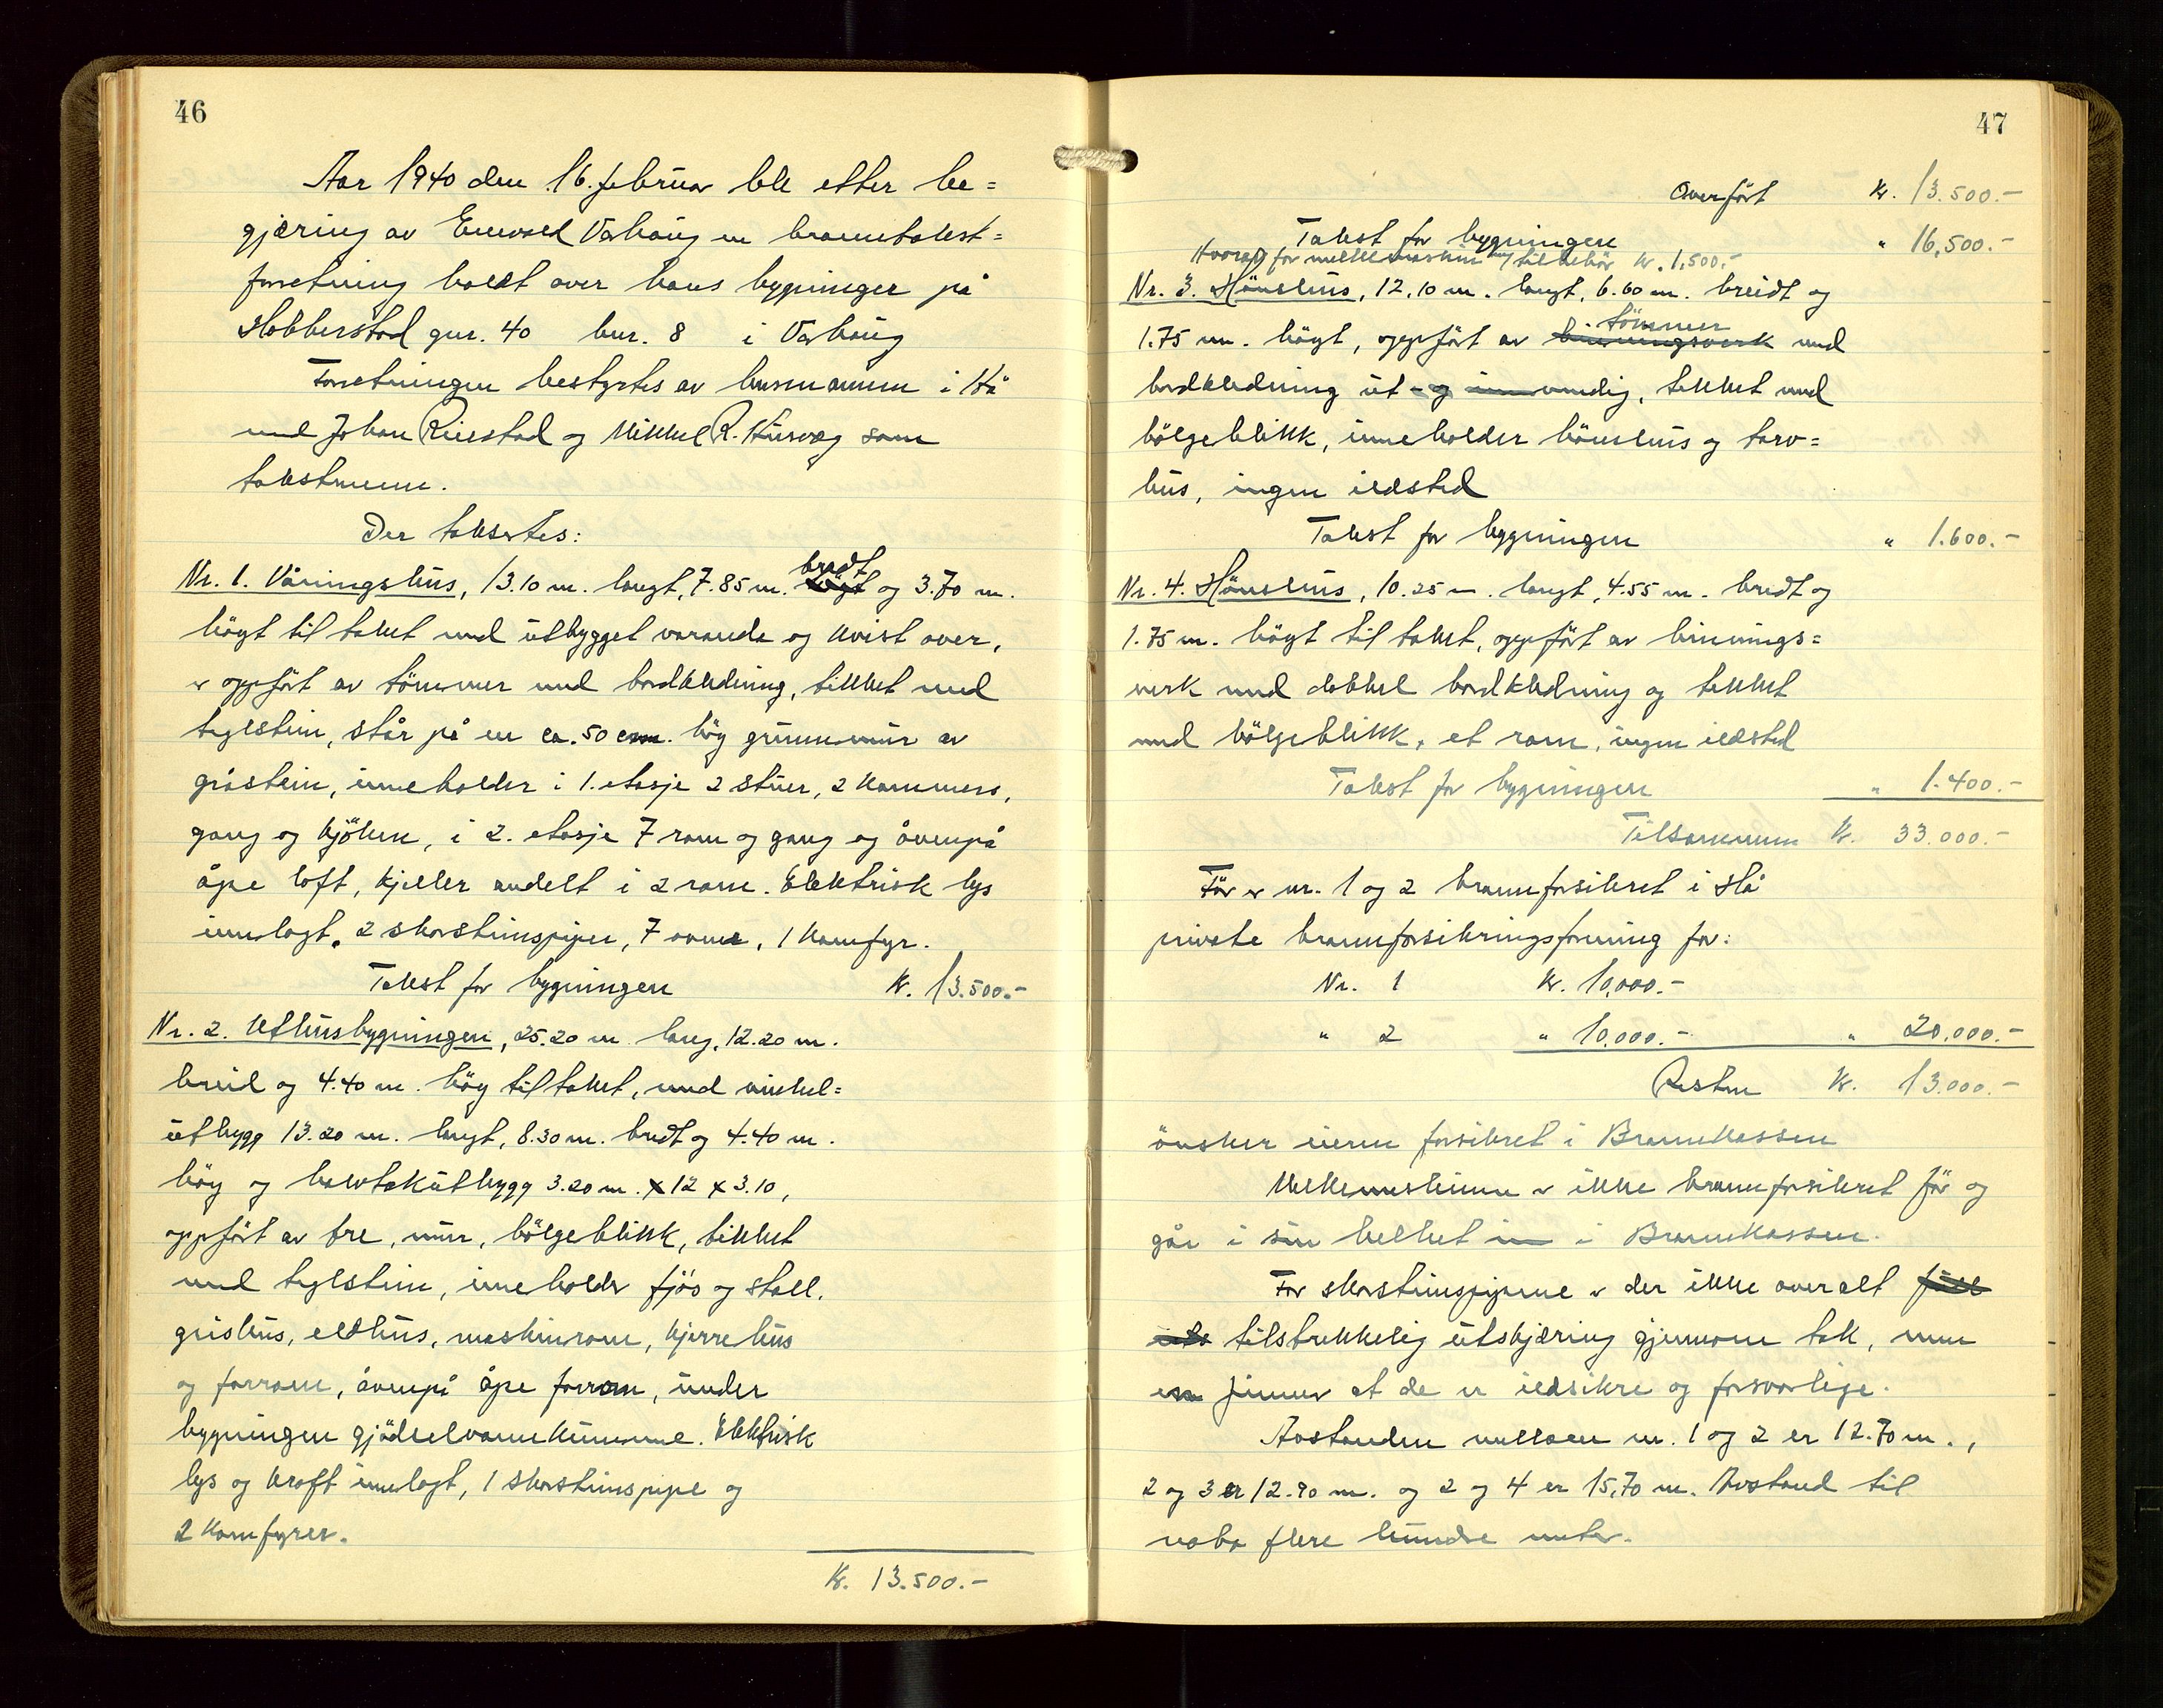 46
Aar 1940 den 16. februar ble etter be=
gjæring av Enevald Varhaug en branntakst=
forretning holdt over hans bygninger på
Hobberstad gnr. 40 bnr. 8 i Varhaug
Forretningen bestyrtes av lensmannen i Hå
med Johan Ruestad og Mikkel R. Husveg som
takstmenn.
Der taksertes:
bredt
Nr. 1. Våningshus, 13.10 m. langt, 7.85 m. høgt og 3.70 m.
högt til taket med utbygget varanda og kvist over,
er oppfört av tömmer med bordkledning, tekket med
teglstein, står på en ca. 50 cm. høg grunnmur av
gråstein, inneholder i 1. etasje 2 stuer, 2 kammers,
gang og kjöken, i 2. etasje 7 rom og gang og åvenpå
åpe loft, kjeller andelt i 2 rom. Elektrisk lys
innlagt. 2 skorsteinspiper, 7 ovner, 1 komfyr.
Takst for bygningen Kr. 13.500.-
Nr. 2. Uthusbygningen, 25.20 m. lang, 12.20 m.
breid og 4.40 m. høg til taket, med vinkel=
utbygg 13.20 m. langt, 8.30 m. bredt og 4.40 m.
høg og halvtakutbygg 3.20 m. x 12 x 3.10,
oppfört av tre, mur, bölgeblikk, tekket
med teglstein, inneholder fjös og stall,
grishus, eldhus, maskinrom, kjerrehus
og forrom, åvenpå åpe forrom, under
bygningen gjödselvannkumme. Elektrisk
lys og kraft innlagt, 1 skorsteinspipe og
2 komfyrer.
Kr. 13.500.-
47
Overfört Kr. 13.500.-
Takst for bygningen " 16,500.-
Hvorav for melkemaskin og tilbehör kr. 1,500.-
Nr. 3. Hönsehus, 12.10 m. langt, 6.60 m. breidt og
tömmer
1.75 m. högt, oppfört av binningsverk med
bordkledning ut- og innvendig, tekket med
bölgeblikk, inneholder hönsehus og torv=
hus, ingen ildsted
Takst for bygningen " 1.600.-
Nr. 4. Hönsehus, 10.25 m. langt, 4.55 m. bredt og
1.75 m. högt til taket, oppfört av binnings=
verk med dobbel bordkledning og tekket
med bölgeblikk, et rom, ingen ildsted
Takst for bygningen " 1.400.-
Tilsammen Kr. 33.000.-
För er nr. 1 og 2 brannforsikret i Hå
private brannforsikringsforening for:
Nr. 1 Kr. 10,000.-
" 2 " 10,000.- " 20,000.-
Resten Kr. 13.000.-
önsker eieren forsikret i Brannkassen
Melkemaskinen er ikke brannforsikret för og
går i sin helhet inn i Brannkassen.
For skorsteinspipene er der ikke overalt
tilstrekkelig utskjæring gjennom tak, men
en finner at de er ildsikre og forsvarlige.
Avstanden mellem nr. 1 og 2 er 12.70 m.,
2 og 3 er 12.90 m. og 2 og 4 er 15,70 m. Avstand til
nabo flere hundre meter.